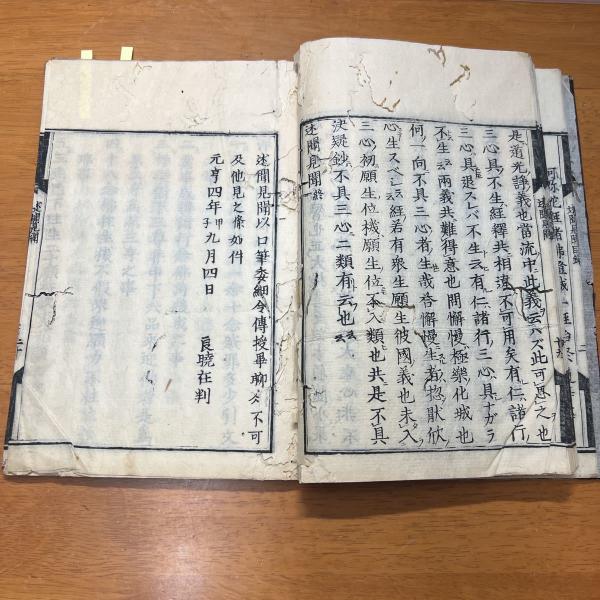 是道光諍義也當流中此義云ハズ此可思之也
三心具不生經釋共相違不可用矣有仁諸行
三心具退スレバ不生云有仁諸行三心具ナガラ
不生云兩義共難得意也問懈慢極樂化城也
何一向不具三心者生哉答懈慢生者惣猒欣
心生スベシ云經若有衆生願生彼國義也未入
三心初願生位機願生位本入類也共是不具
決疑鈔不具三心二類有云也云云
述聞見聞終
述聞見聞以口筆委細令傳授畢聊不可
及他見之條如件
元亨四年甲子九月四日
良曉在判
述聞見聞